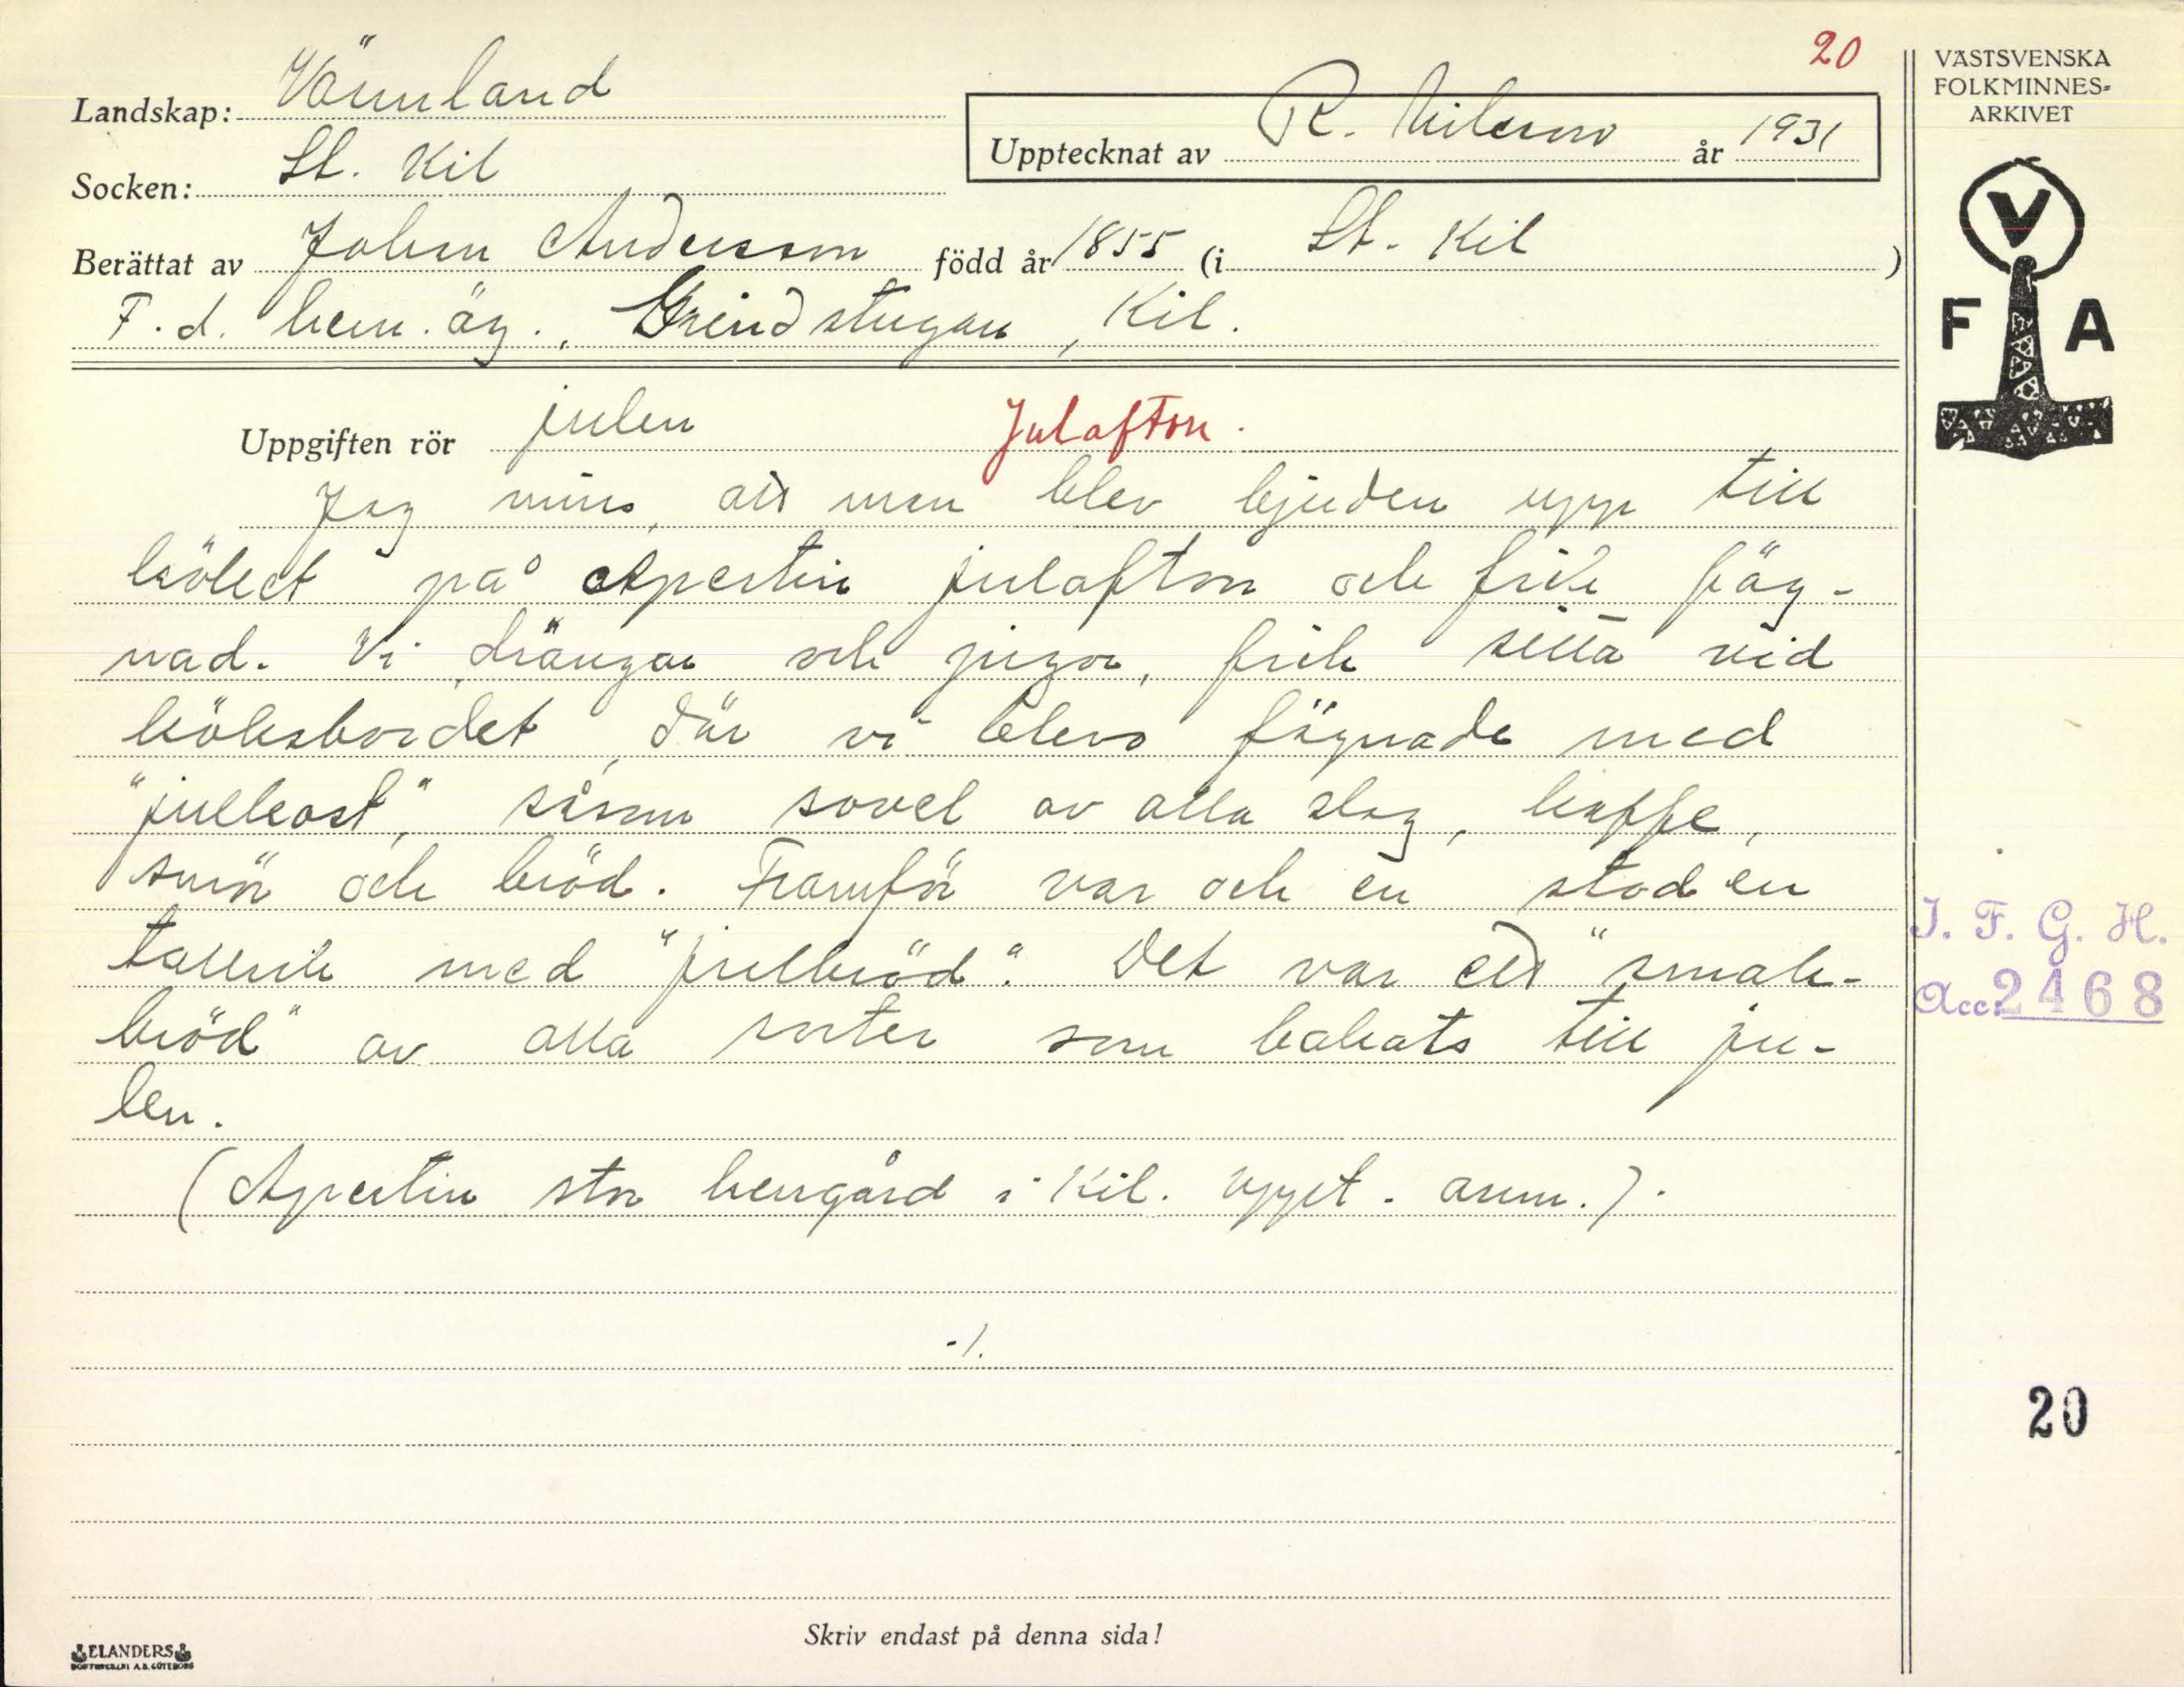 20
Landskap: Värmland
Socken: St. Kil
Upptecknat av R. Nilsson år 1931
Berättat av Johan Andersson född år 1855 (i St. Kil)
F.d. hem.äg., Grindstugan, Kil.
Uppgiften rör julen Julafton.
Jag mins, att man blev bjuden upp till
köket på Apertin julafton och fick fäg-
nad. Vi drängar och pigor, fick sitta vid
köksbordet, där vi blevo fägnade med
"julkost," såsom sovel av alla slag, kaffe,
smör och bröd. Framför var och en stod en
tallrik med "julbröd". Det var ett "smak-
bröd" av alla sorter som bakats till ju-
len.
(Apertin stor herrgård i Kil. uppt. anm.).
-/.
Skriv endast på denna sida!
ELANDERS
VÄSTSVENSKA
FOLKMINNES-
ARKIVET
V
F A
I. F. G. H.
Acc. 2468
20